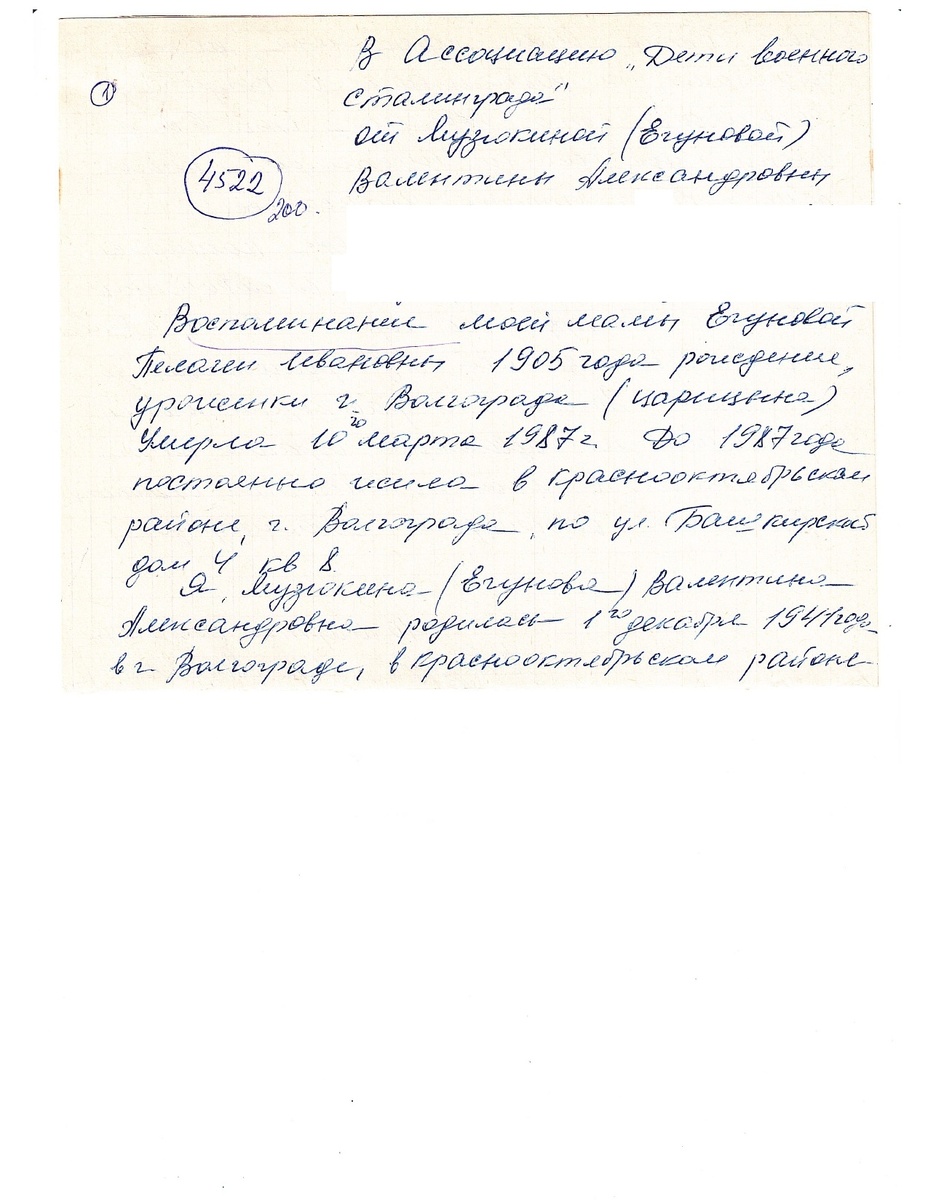 В Ассоциацию „Дети военного
①
Сталинграда"
от Музюкиной (Егуновой)
4522
Валентины Александровны
200.
Воспоминание моей мамы Егуновой
Пелагеи Ивановны 1905 года рождение,
уроженки г. Волгограда (Царицына)
Умерла 10го марта 1987г. До 1987года
постоянно жила в Краснооктябрьском
районе, г. Волгограда, по ул. Башкирский
дом 4 кв 8.
Я, Музюкина (Егунова) Валентина
Александровна родилась 1го декабря 1941года
в г. Волгограде, в Краснооктябрьском районе